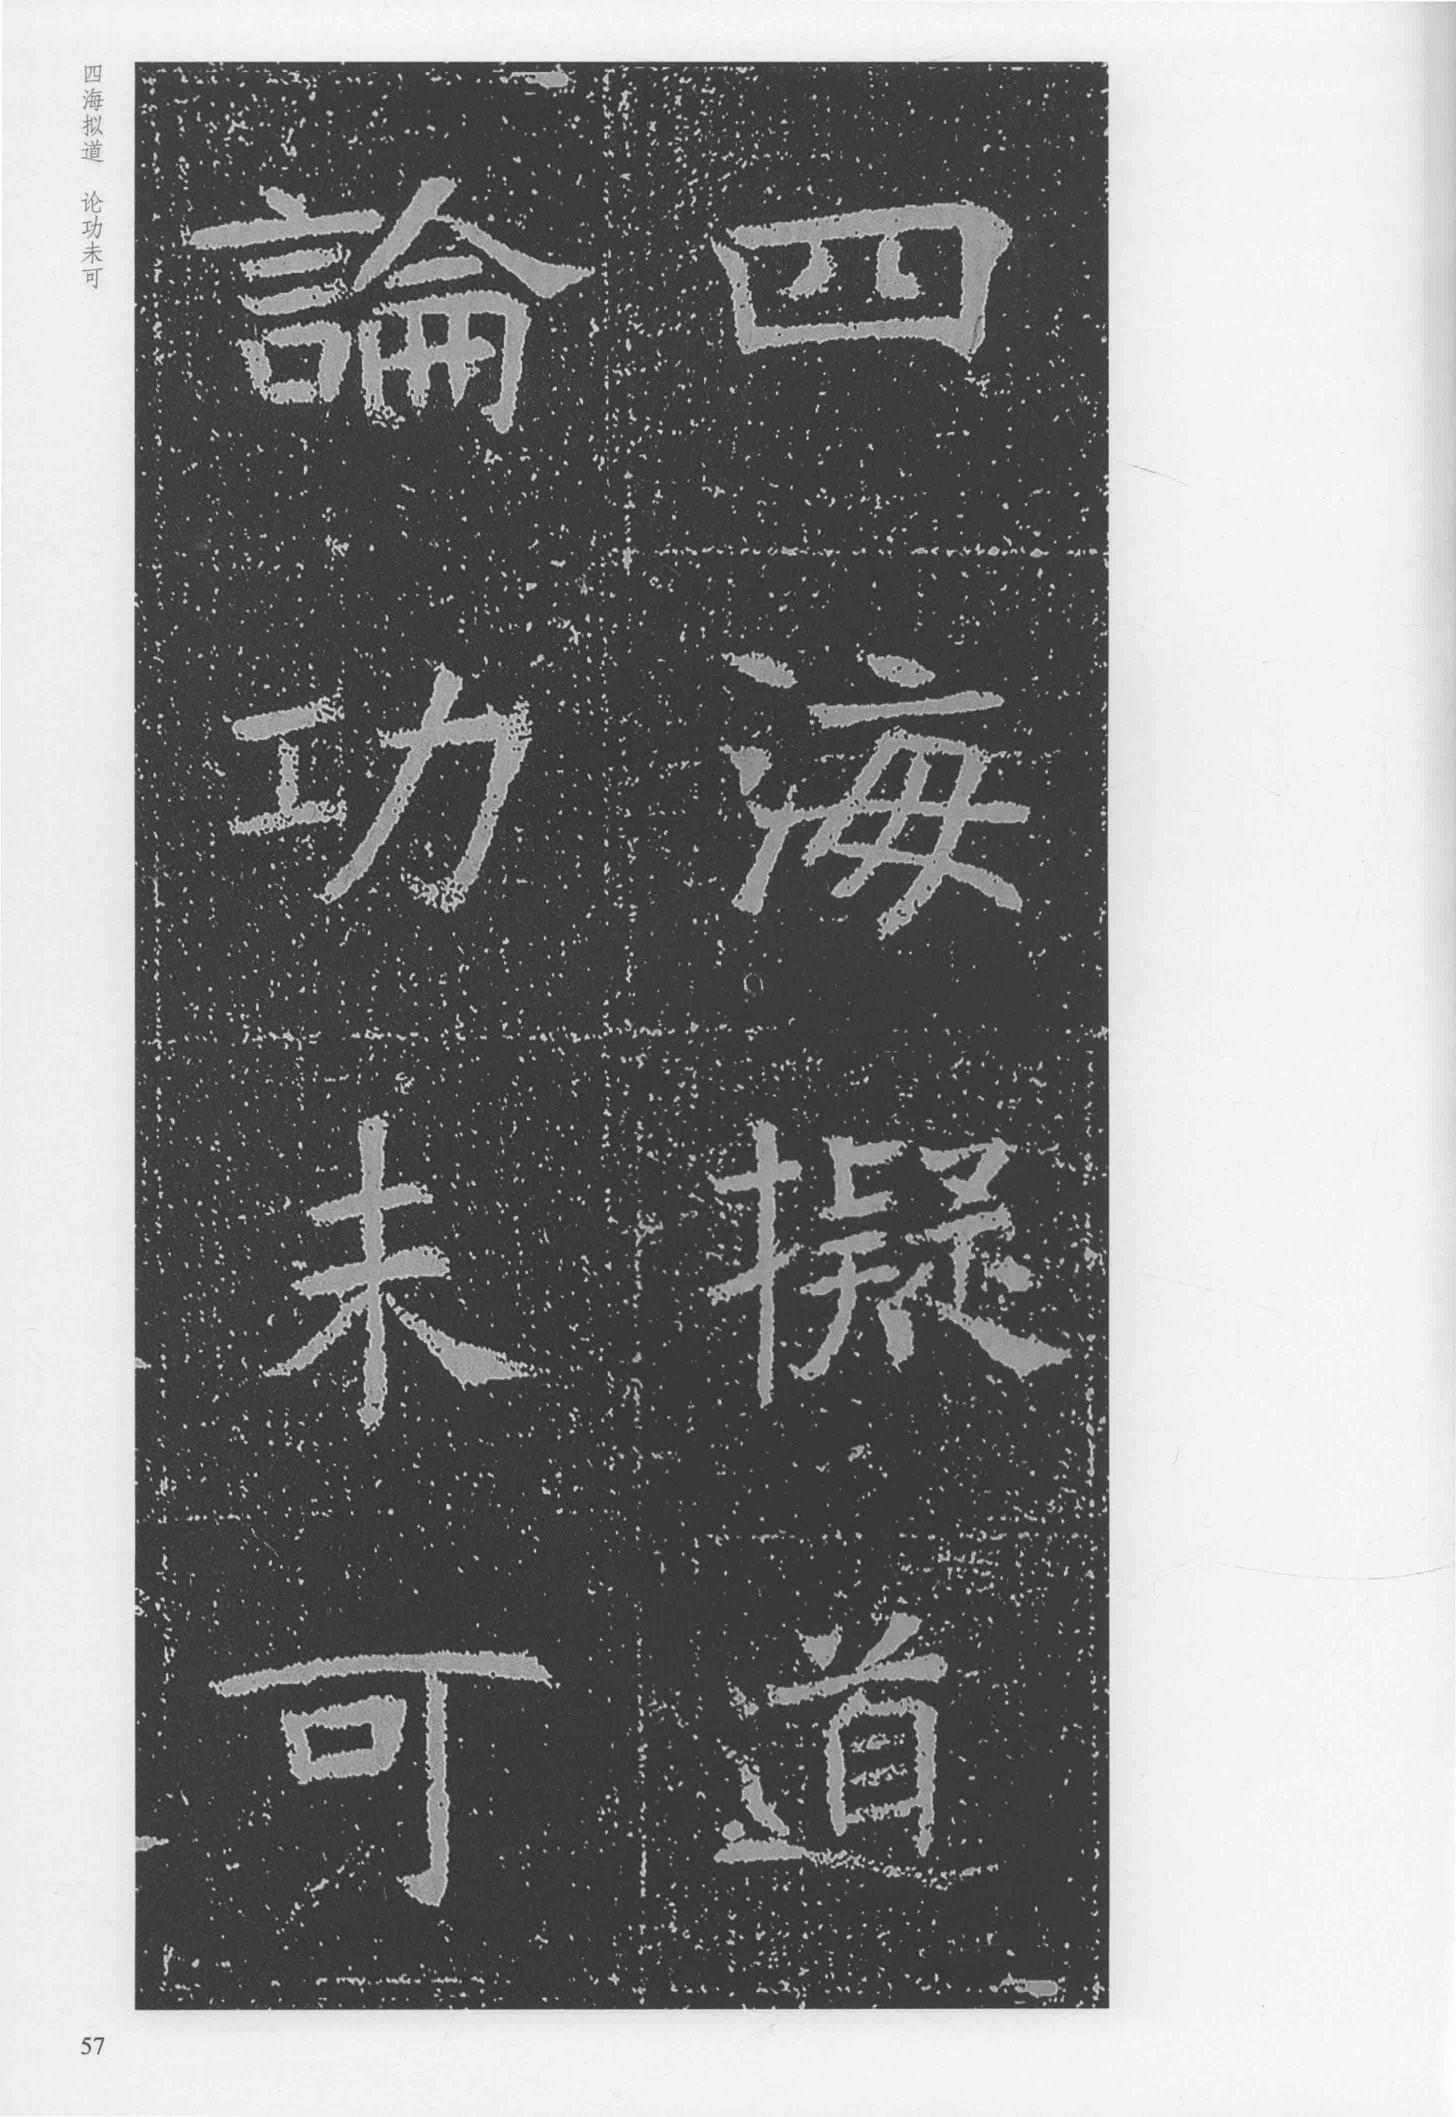 四海擬道
論功未可
四海拟道 论功未可
57